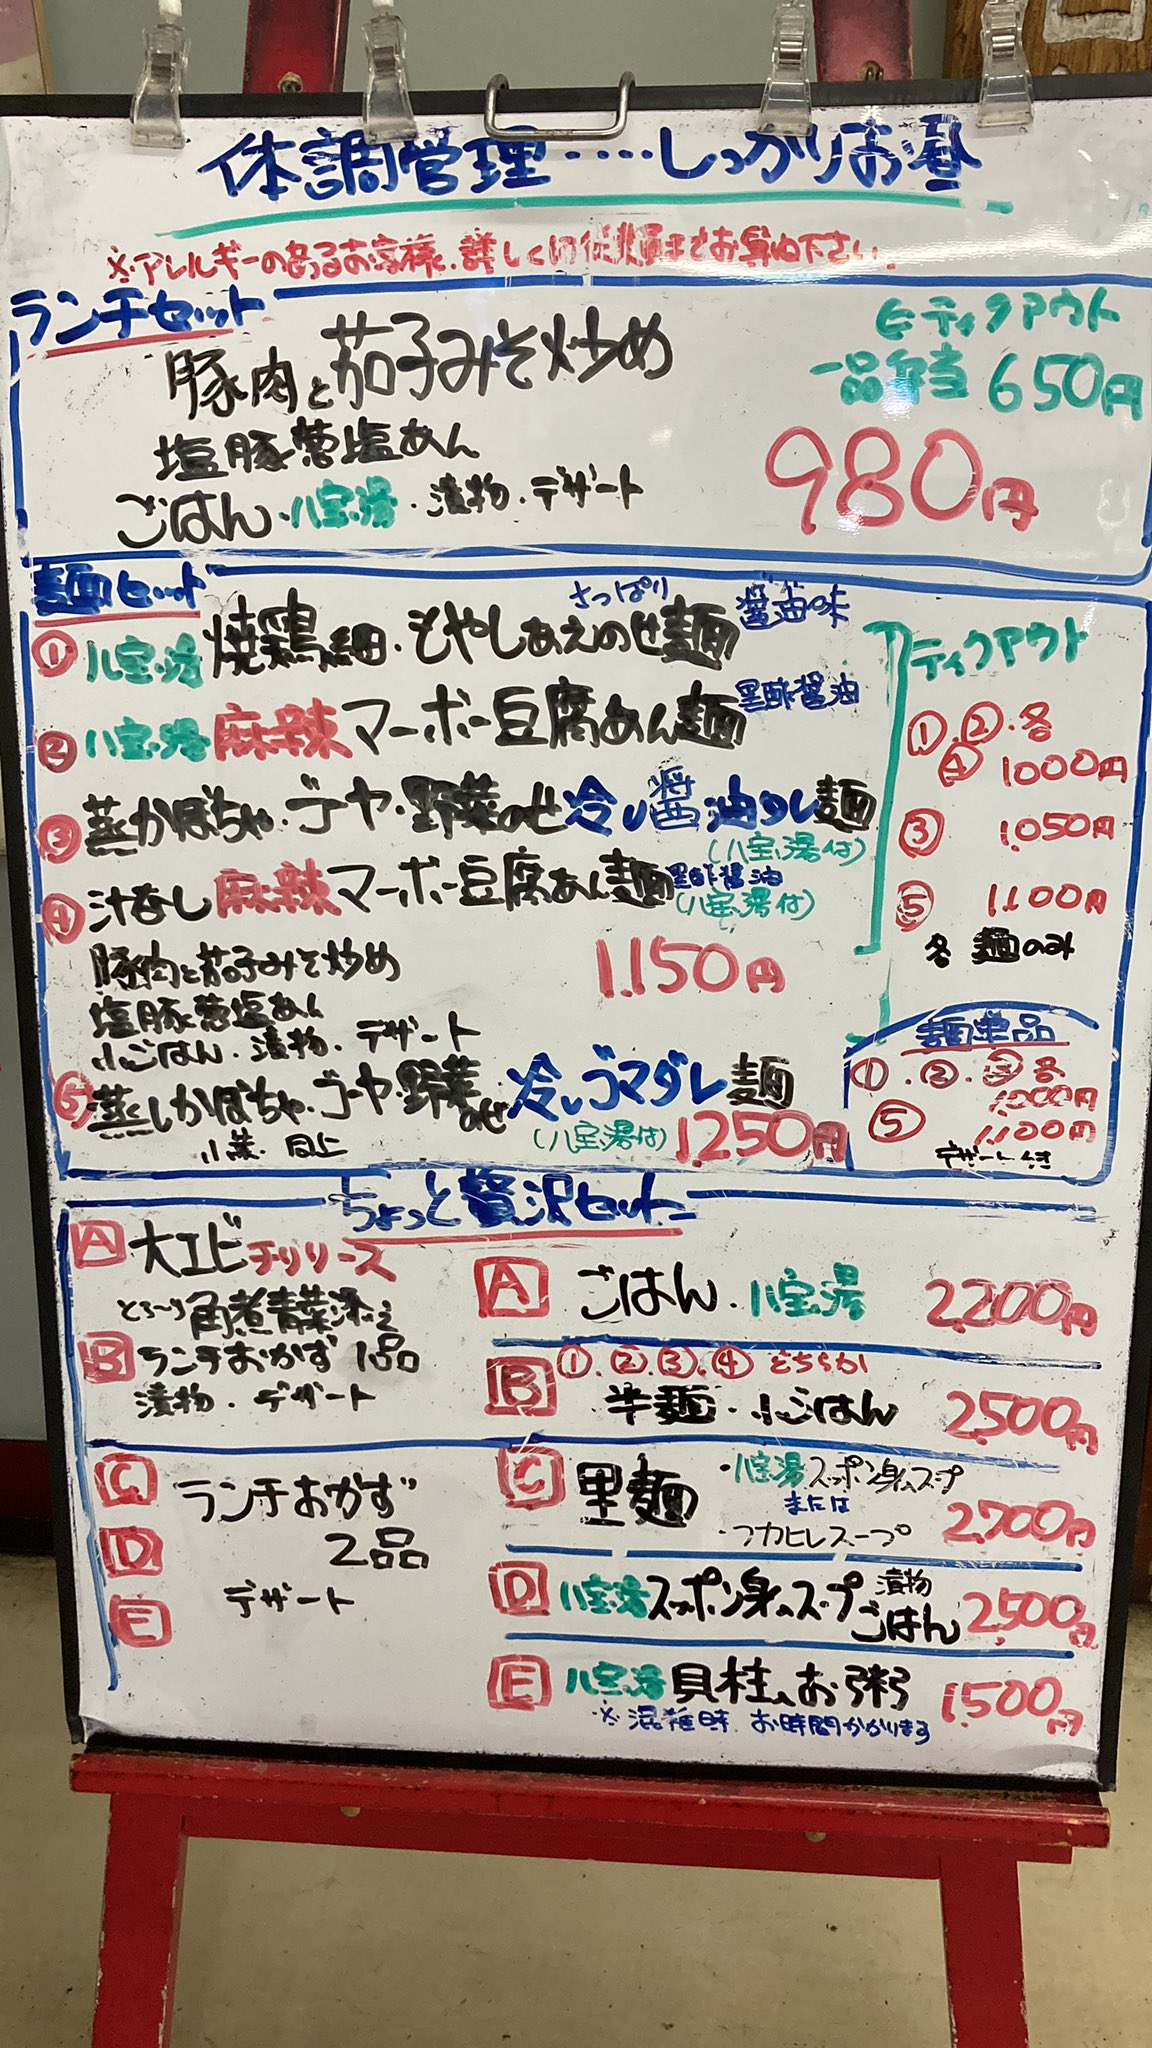 体調管理・・・・・しっかりお昼
※アレルギーのあるお客様、詳しくは従業員までお尋ね下さい。
ランチセット
豚肉と茄子みそ炒め
塩豚葱塩あん
ごはん・八宝湯・漬物・デザート
テイクアウト
一品弁当 650円
980円
麺セット
① 八宝湯 焼鶏細・もやしあえのせ麺 さっぱり 醤油味
② 八宝湯 麻辣マーボー豆腐あん麺 黒酢醤油
③ 蒸かぼちゃ・ゴーヤ・野菜のせ冷し醤油タレ麺
(八宝湯付)
④ 汁なし麻辣マーボー豆腐あん麺 黒酢醤油
(八宝湯付)
豚肉と茄子みそ炒め
塩豚葱塩あん
小ごはん・漬物・デザート
1,150円
⑤ 蒸しかぼちゃ・ゴーヤ・野菜のせ冷しゴマダレ麺
小菜 同上
(八宝湯付) 1,250円
テイクアウト
①.②.各
④ 1,000円
③ 1,050円
⑤ 1,100円
各 麺のみ
麺単品
①.②.③各
1,000円
⑤ 1,100円
デザート付き
ちょっと贅沢セット
A 大エビチリソース
とろ〜り角煮青菜添え
B ランチおかず 1品
漬物・デザート
A ごはん・八宝湯 2,200円
B ①.②.③.④ どちらか
半麺・小ごはん 2,500円
C
D
E
ランチおかず
2品
デザート
C 黒麺 ・八宝湯スッポン身入スープ
または
・フカヒレスープ 2,700円
D 八宝湯スッポン身入スープ 漬物
ごはん 2,500円
E 八宝湯貝柱入お粥 1,500円
※混雑時、お時間かかります